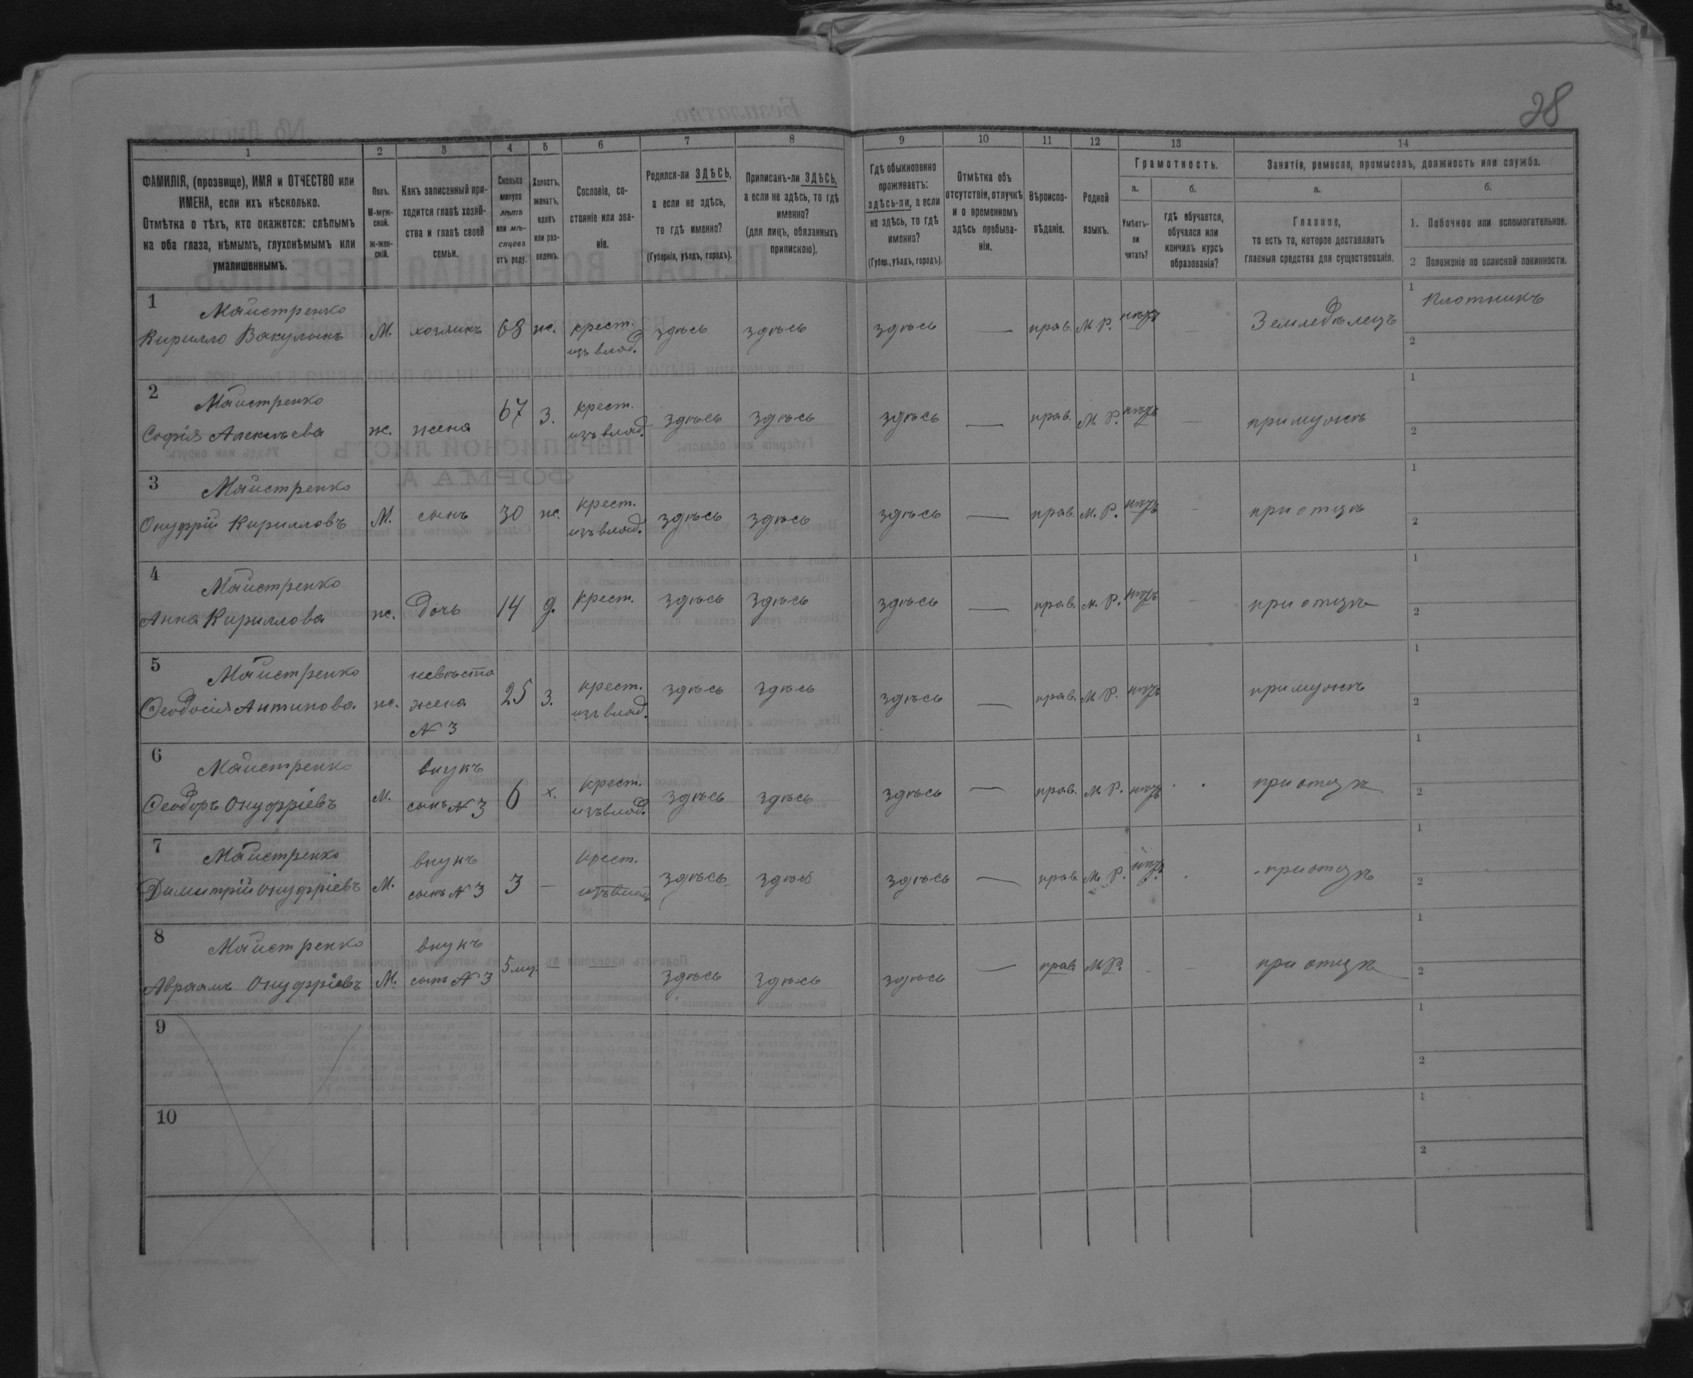 28
1 2 3 4 5 6 7 8 9 10 11 12 13 14
ФАМИЛІЯ, (прозвище), ИМЯ и ОТЧЕСТВО или ИМЕНА, если ихъ нѣсколько.
Отмѣтка о тѣхъ, кто окажется: слѣпымъ на оба глаза, нѣмымъ, глухонѣмымъ или умалишеннымъ.
Полъ.
М-мужской.
Ж-женскій.
Какъ записанный приходится главѣ хозяйства и главѣ своей семьи.
Сколько минуло лѣтъ или мѣсяцевъ отъ роду.
Холостъ, женатъ, вдовъ или разведенъ.
Сословіе, состояніе или званіе.
Родился-ли ЗДѢСЬ, а если не здѣсь, то гдѣ именно?
(Губернія, уѣздъ, городъ).
Приписанъ-ли ЗДѢСЬ, а если не здѣсь, то гдѣ именно?
(для лицъ, обязанныхъ припискою).
Гдѣ обыкновенно проживаетъ: здѣсь-ли, а если не здѣсь, то гдѣ именно?
(Губер., уѣздъ, городъ).
Отмѣтка объ отсутствіи, отлучкѣ и о временномъ здѣсь пребываніи.
Вѣроисповѣданіе.
Родной языкъ.
Грамотность.
а.
Умѣетъ-ли читать?
б.
гдѣ обучается, обучался или кончилъ курсъ образованія?
Занятіе, ремесло, промыселъ, должность или служба.
а.
Главное,
то есть то, которое доставляетъ главныя средства для существованія.
б.
1. Побочное или вспомогательное.
2 Положеніе по воинской повинности.
1 Майстренко
Кирилло Вакулинъ М. хозяинъ 68 ж. крест. изъ влад. здѣсь здѣсь здѣсь — прав. М. Р. нѣтъ — Земледѣлецъ 1 Плотникъ
2
2 Майстренко
Софія Алексѣева ж. жена 67 з. крест. изъ влад. здѣсь здѣсь здѣсь — прав. М. Р. нѣтъ — при мужѣ 1
2
3 Майстренко
Онуфрій Кирилловъ М. сынъ 30 ж. крест. изъ влад. здѣсь здѣсь здѣсь — прав. М. Р. нѣтъ - при отцѣ 1
2
4 Майстренко
Анна Кириллова ж. дочь 14 д. крест. здѣсь здѣсь здѣсь — прав. М. Р. нѣтъ - при отцѣ 1
2
5 Майстренко
Ѳеодосія Антипова ж. невѣста жена № 3 25 з. крест. изъ влад. здѣсь здѣсь здѣсь — прав. М. Р. нѣтъ при мужѣ 1
2
6 Майстренко
Ѳеодоръ Онуфріевъ М. внукъ сынъ № 3 6 х. крест. изъ влад. здѣсь здѣсь здѣсь — прав. М. Р. нѣтъ при отцѣ 1
2
7 Майстренко
Димитрій Онуфріевъ М. внукъ сынъ № 3 3 — крест. изъ влад. здѣсь здѣсь здѣсь — прав. М. Р. нѣтъ при отцѣ 1
2
8 Майстренко
Авраамъ Онуфріевъ М. внукъ сынъ № 3 5 мѣс. — — здѣсь здѣсь здѣсь — прав. М. Р. - - при отцѣ 1
2
9 1
2
10 1
2